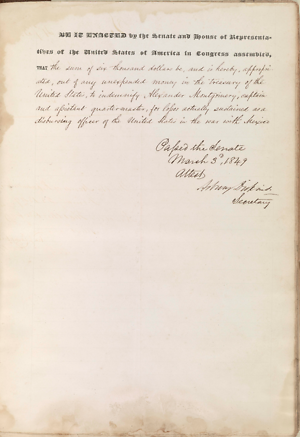 BE IT ENACTED by the Senate and House of Representa-
tives of the United States of America in Congress assembled,
THAT the sum of six thousand dollars be, and is hereby, appropri-
ated, out of any unexpended money in the treasury of the
United States, to indemnify Alexander Montgomery, captain
and assistant quartermaster, for losses actually sustained as a
disbursing officer of the United States in the war with Mexico
Passed the Senate
March 3d 1849
Attest
Asbury Dickins
Secretary